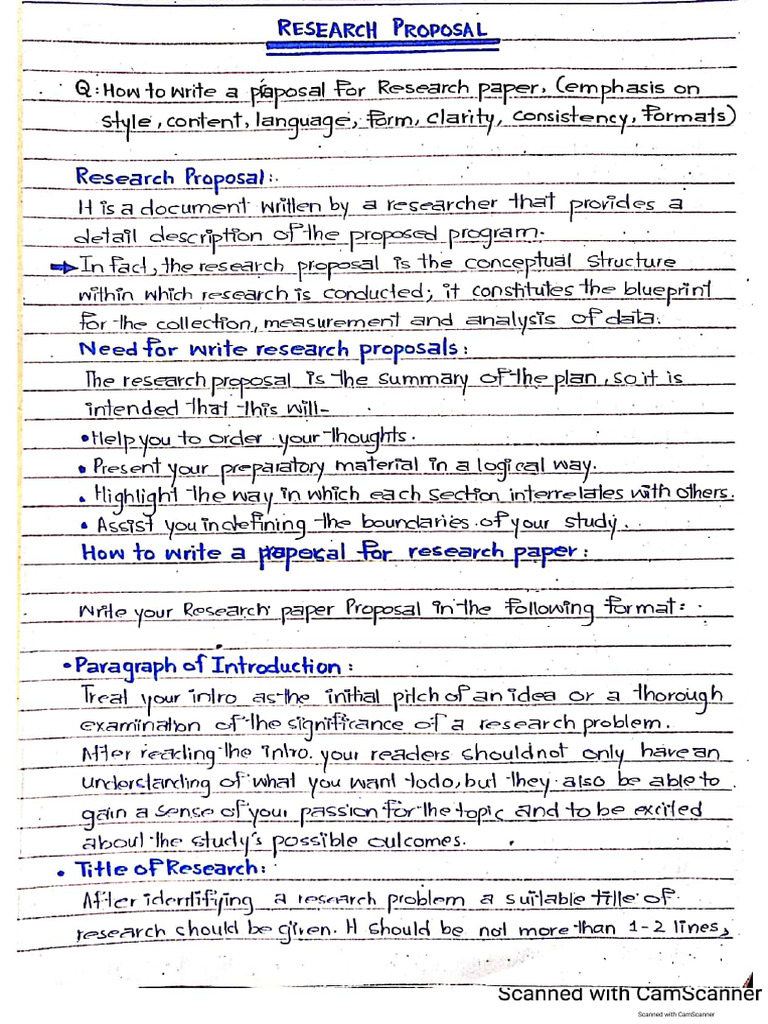 RESEARCH PROPOSAL
Q: How to write a proposal for Research paper. (emphasis on
style, content, language, form, clarity, consistency, formats)
Research Proposal:.
It is a document written by a researcher that provides a
detail description of the proposed program.
In fact, the research proposal is the conceptual structure
within which research is conducted; it constitutes the blueprint
for the collection, measurement and analysis of data.
Need for write research proposals:
The research proposal is the summary of the plan, so it is
intended that this will-
• Help you to order your thoughts.
• Present your preparatory material in a logical way.
• Highlight the way in which each section interrelates with others.
• Assist you in defining the boundaries of your study.
How to write a proposal for research paper:
Write your Research paper Proposal in the following format:
• Paragraph of Introduction:
Treat your intro as the initial pitch of an idea or a thorough
examination of the significance of a research problem.
After reading the intro. your readers should not only have an
understanding of what you want todo, but they also be able to
gain a sense of your passion for the topic and to be excited
about the study's possible outcomes.
• Title of Research:
After identifying a research problem a suitable title of
research should be given. It should be not more than 1-2 lines,
Scanned with CamScanner
Scanned with CamScanner